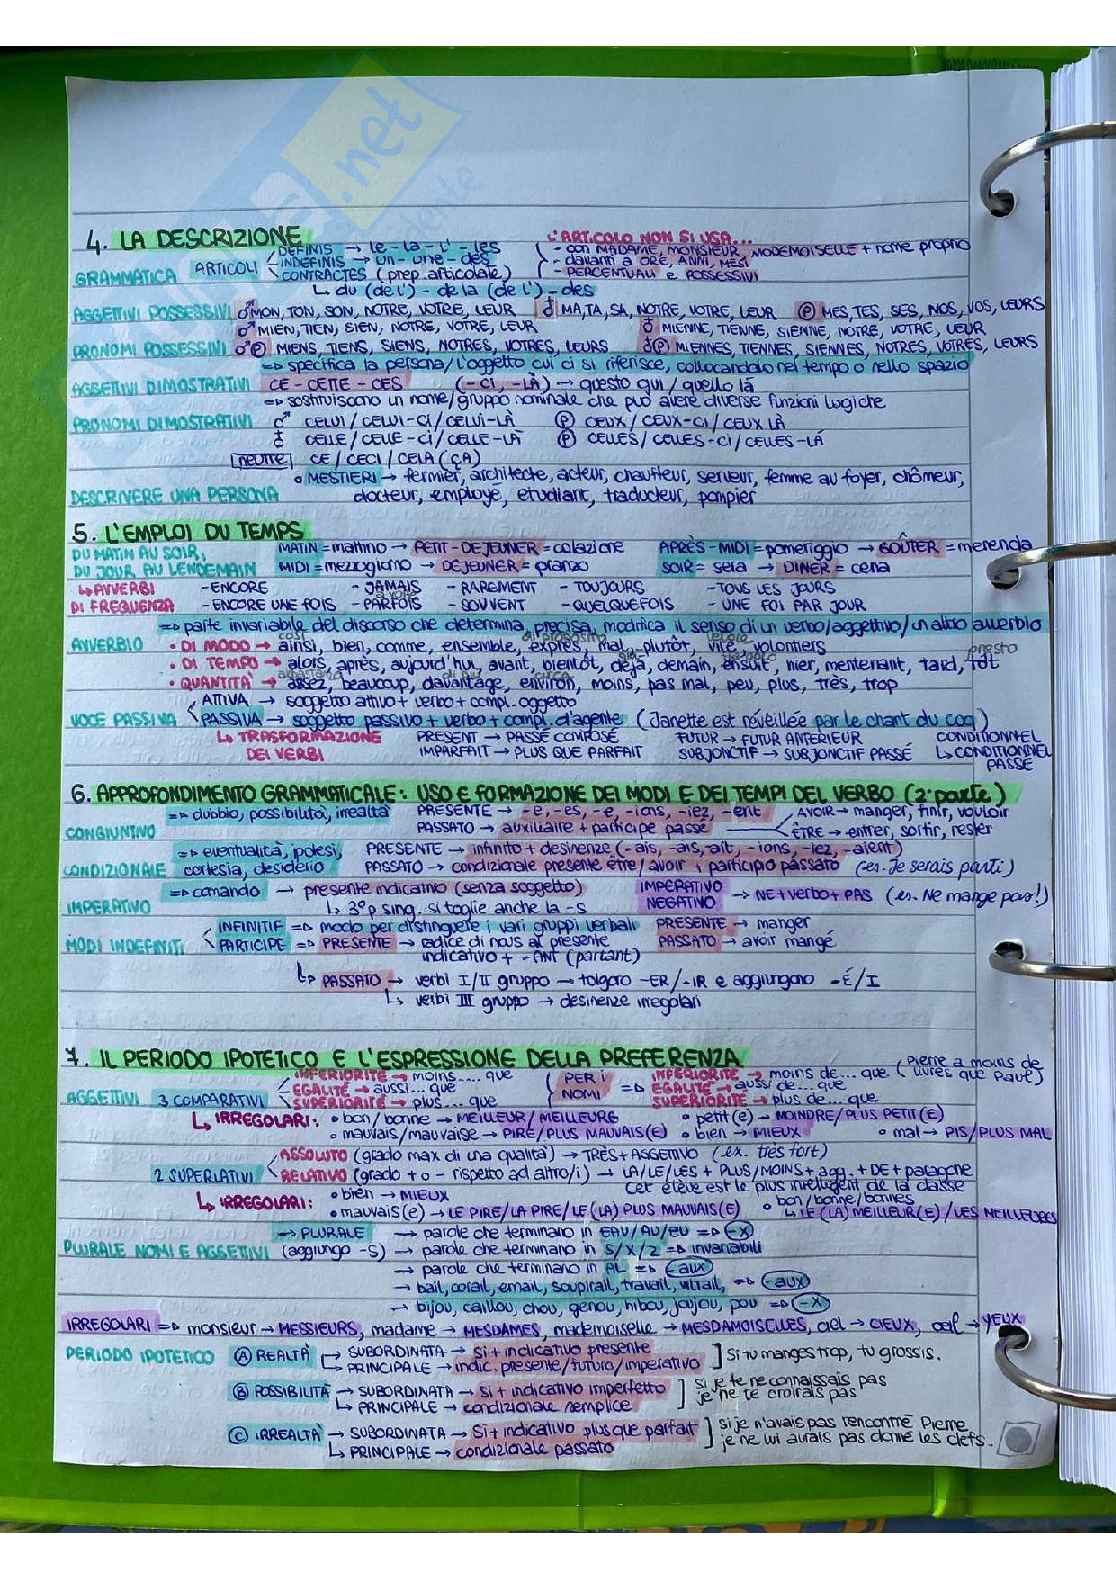 4. LA DESCRIZIONE
L'ARTICOLO NON SI USA...
DEFINIS → le - la - l' - les
- con MADAME, MONSIEUR, MODEMOISELLE + nome proprio
GRAMMATICA ARTICOLI INDEFINIS → un - une - des
- davanti a ORE, ANNI, MESI
CONTRACTES (prep. articolate)
- PERCENTUALI e POSSESSIVI
↳ du (de l') - de la (de l') - des
AGGETTIVI POSSESSIVI ♂ MON, TON, SON, NOTRE, VOTRE, LEUR ♀ MA, TA, SA, NOTRE, VOTRE, LEUR Ⓟ MES, TES, SES, NOS, VOS, LEURS
♂ MIEN, TIEN, SIEN, NOTRE, VOTRE, LEUR ♀ MIENNE, TIENNE, SIENNE, NOTRE, VOTRE, LEUR
PRONOMI POSSESSIVI ♂Ⓟ MIENS, TIENS, SIENS, NOTRES, VOTRES, LEURS ♀Ⓟ MIENNES, TIENNES, SIENNES, NOTRES, VOTRES, LEURS
=> specifica la persona/l'oggetto cui ci si riferisce, collocandolo nel tempo o nello spazio
AGGETTIVI DIMOSTRATIVI CE - CETTE - CES (-CI, -LÀ) → questo qui / quello là
=> sostituiscono un nome/gruppo nominale che può avere diverse funzioni logiche
PRONOMI DIMOSTRATIVI ♂ CELUI / CELUI-CI / CELUI-LÀ Ⓟ CEUX / CEUX-CI / CEUX LÀ
♀ CELLE / CELLE-CI / CELLE-LÀ Ⓟ CELLES / CELLES-CI / CELLES-LÀ
neutre CE / CECI / CELA (ÇA)
• MESTIERI → fermier, architecte, acteur, chauffeur, serveur, femme au foyer, chômeur,
DESCRIVERE UNA PERSONA docteur, employé, etudiant, traducteur, pompier
5. L'EMPLOI DU TEMPS
DU MATIN AU SOIR, MATIN = mattino → PETIT-DEJEUNER = colazione APRÈS-MIDI = pomeriggio → GOÛTER = merenda
DU JOUR AU LENDEMAIN MIDI = mezzogiorno → DEJEUNER = pranzo SOIR = sera → DINER = cena
↳ AVVERBI - ENCORE - JAMAIS - RAREMENT - TOUJOURS - TOUS LES JOURS
DI FREQUENZA - ENCORE UNE FOIS - PARFOIS - SOUVENT - QUELQUEFOIS - UNE FOI PAR JOUR
=> parte invariabile del discorso che determina, precisa, modifica il senso di un verbo/aggettivo/un altro avverbio
così di proposito
AVVERBIO • DI MODO → ainsi, bien, comme, ensemble, exprès, mal, plutôt, vite, volontiers
presto
• DI TEMPO → alors, après, aujourd'hui, avant, bientôt, déjà, demain, ensuit, hier, mentenant, tard, tôt
abbastanza di più circa
• QUANTITÀ → assez, beaucoup, davantage, environ, moins, pas mal, peu, plus, très, trop
ATTIVA → soggetto attivo + verbo + compl. oggetto
VOCE PASSIVA PASSIVA → soggetto passivo + verbo + compl. d'agente (Janette est réveillée par le chant du coq)
↳ TRASFORMAZIONE PRESENT → PASSÉ COMPOSÉ FUTUR → FUTUR ANTERIEUR CONDITIONNEL
DEI VERBI IMPARFAIT → PLUS QUE PARFAIT SUBJONCTIF → SUBJONCTIF PASSÉ ↳ CONDITIONNEL
PASSÉ
6. APPROFONDIMENTO GRAMMATICALE: USO E FORMAZIONE DEI MODI E DEI TEMPI DEL VERBO (2ª parte)
=> dubbio, possibilità, irrealtà PRESENTE → -e, -es, -e, -ions, -iez, -ent AVOIR → manger, finir, vouloir
CONGIUNTIVO PASSATO → auxiliaire + participe passé ÊTRE → entrer, sortir, rester
=> eventualità, ipotesi, PRESENTE → infinito + desinenze (-ais, -ais, -ait, -ions, -iez, -aient)
CONDIZIONALE cortesia, desiderio PASSATO → condizionale presente être/avoir + participio passato (es. Je serais parti)
=> comando → presente indicativo (senza soggetto) IMPERATIVO
IMPERATIVO ↳ 3ª p sing. si toglie anche la -s NEGATIVO → NE + verbo + PAS (es. Ne mange pas!)
INFINITIF => modo per distinguere i vari gruppi verbali PRESENTE → manger
MODI INDEFINITI PARTICIPE => PRESENTE → radice di nous al presente PASSATO → avoir mangé
indicativo + -ANT (partant)
↳ PASSATO → verbi I/II gruppo → tolgono -ER/-IR e aggiungono -É/I
↳ verbi III gruppo → desinenze irregolari
7. IL PERIODO IPOTETICO E L'ESPRESSIONE DELLA PREFERENZA
INFERIORITÉ → moins.... que PER I INFERIORITÉ → moins de... que (Pierre a moins de
AGGETTIVI 3 COMPARATIVI EGALITÉ → aussi... que NOMI => EGALITÉ → aussi de... que livres que Paul)
SUPERIORITÉ → plus... que SUPERIORITÉ → plus de... que
↳ IRREGOLARI: • bon/bonne → MEILLEUR/MEILLEURE • petit(e) → MOINDRE/PLUS PETIT(E)
• mauvais/mauvaise → PIRE/PLUS MAUVAIS(E) • bien → MIEUX • mal → PIS/PLUS MAL
ASSOLUTO (grado max di una qualità) → TRÈS + AGGETTIVO (es. très fort)
2 SUPERLATIVI RELATIVO (grado + o - rispetto ad altro/i) → LA/LE/LES + PLUS/MOINS + agg. + DE + paragone
Cet élève est le plus intelligent de la classe
↳ IRREGOLARI: • bien → MIEUX • bon/bonne/bonnes
• mauvais(e) → LE PIRE/LA PIRE/LE (LA) PLUS MAUVAIS(E) ↳ LE (LA) MEILLEUR(E) / LES MEILLEURES
=> PLURALE → parole che terminano in EAU/AU/EU => -X
PLURALE NOMI E AGGETTIVI (aggiungo -S) → parole che terminano in S/X/Z => invariabili
→ parole che terminano in AL => -aux
→ bail, corail, email, soupirail, travail, vitrail, => -aux
→ bijou, caillou, chou, genou, hibou, joujou, pou => -X
IRREGOLARI => monsieur → MESSIEURS, madame → MESDAMES, mademoiselle → MESDAMOISELLES, ciel → CIEUX, oeil → YEUX
PERIODO IPOTETICO Ⓐ REALTÀ → SUBORDINATA → Si + indicativo presente
↳ PRINCIPALE → indic. presente/futuro/imperativo ] Si tu manges trop, tu grossis.
Ⓑ POSSIBILITÀ → SUBORDINATA → Si + indicativo imperfetto ] Si je te reconnaissais pas
↳ PRINCIPALE → condizionale semplice je ne te croirais pas
Ⓒ IRREALTÀ → SUBORDINATA → Si + indicativo plus que parfait ] Si je n'avais pas rencontré Pierre
↳ PRINCIPALE → condizionale passato je ne lui aurais pas donné les clefs.
.net